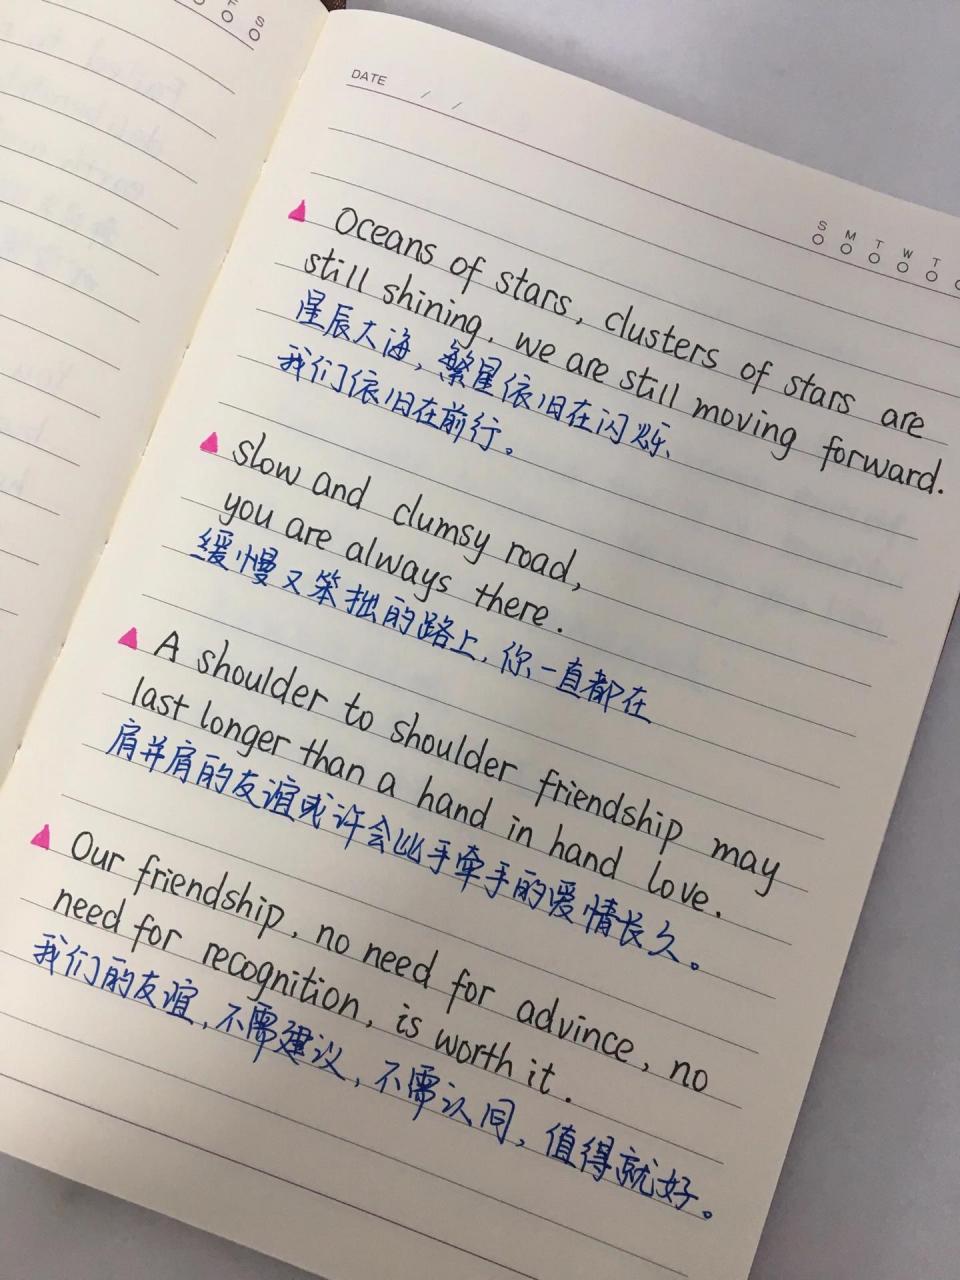 F S
DATE / /
S M T W T
Oceans of stars, clusters of stars are
still shining, we are still moving forward.
星辰大海，繁星依旧在闪烁、
我们依旧在前行。
slow and clumsy road,
you are always there.
缓慢又笨拙的路上，你一直都在
A shoulder to shoulder friendship may
last longer than a hand in hand love.
肩并肩的友谊或许会比手牵手的爱情长久。
Our friendship, no need for advince, no
need for recognition, is worth it.
我们的友谊，不需建议，不需认同，值得就好。